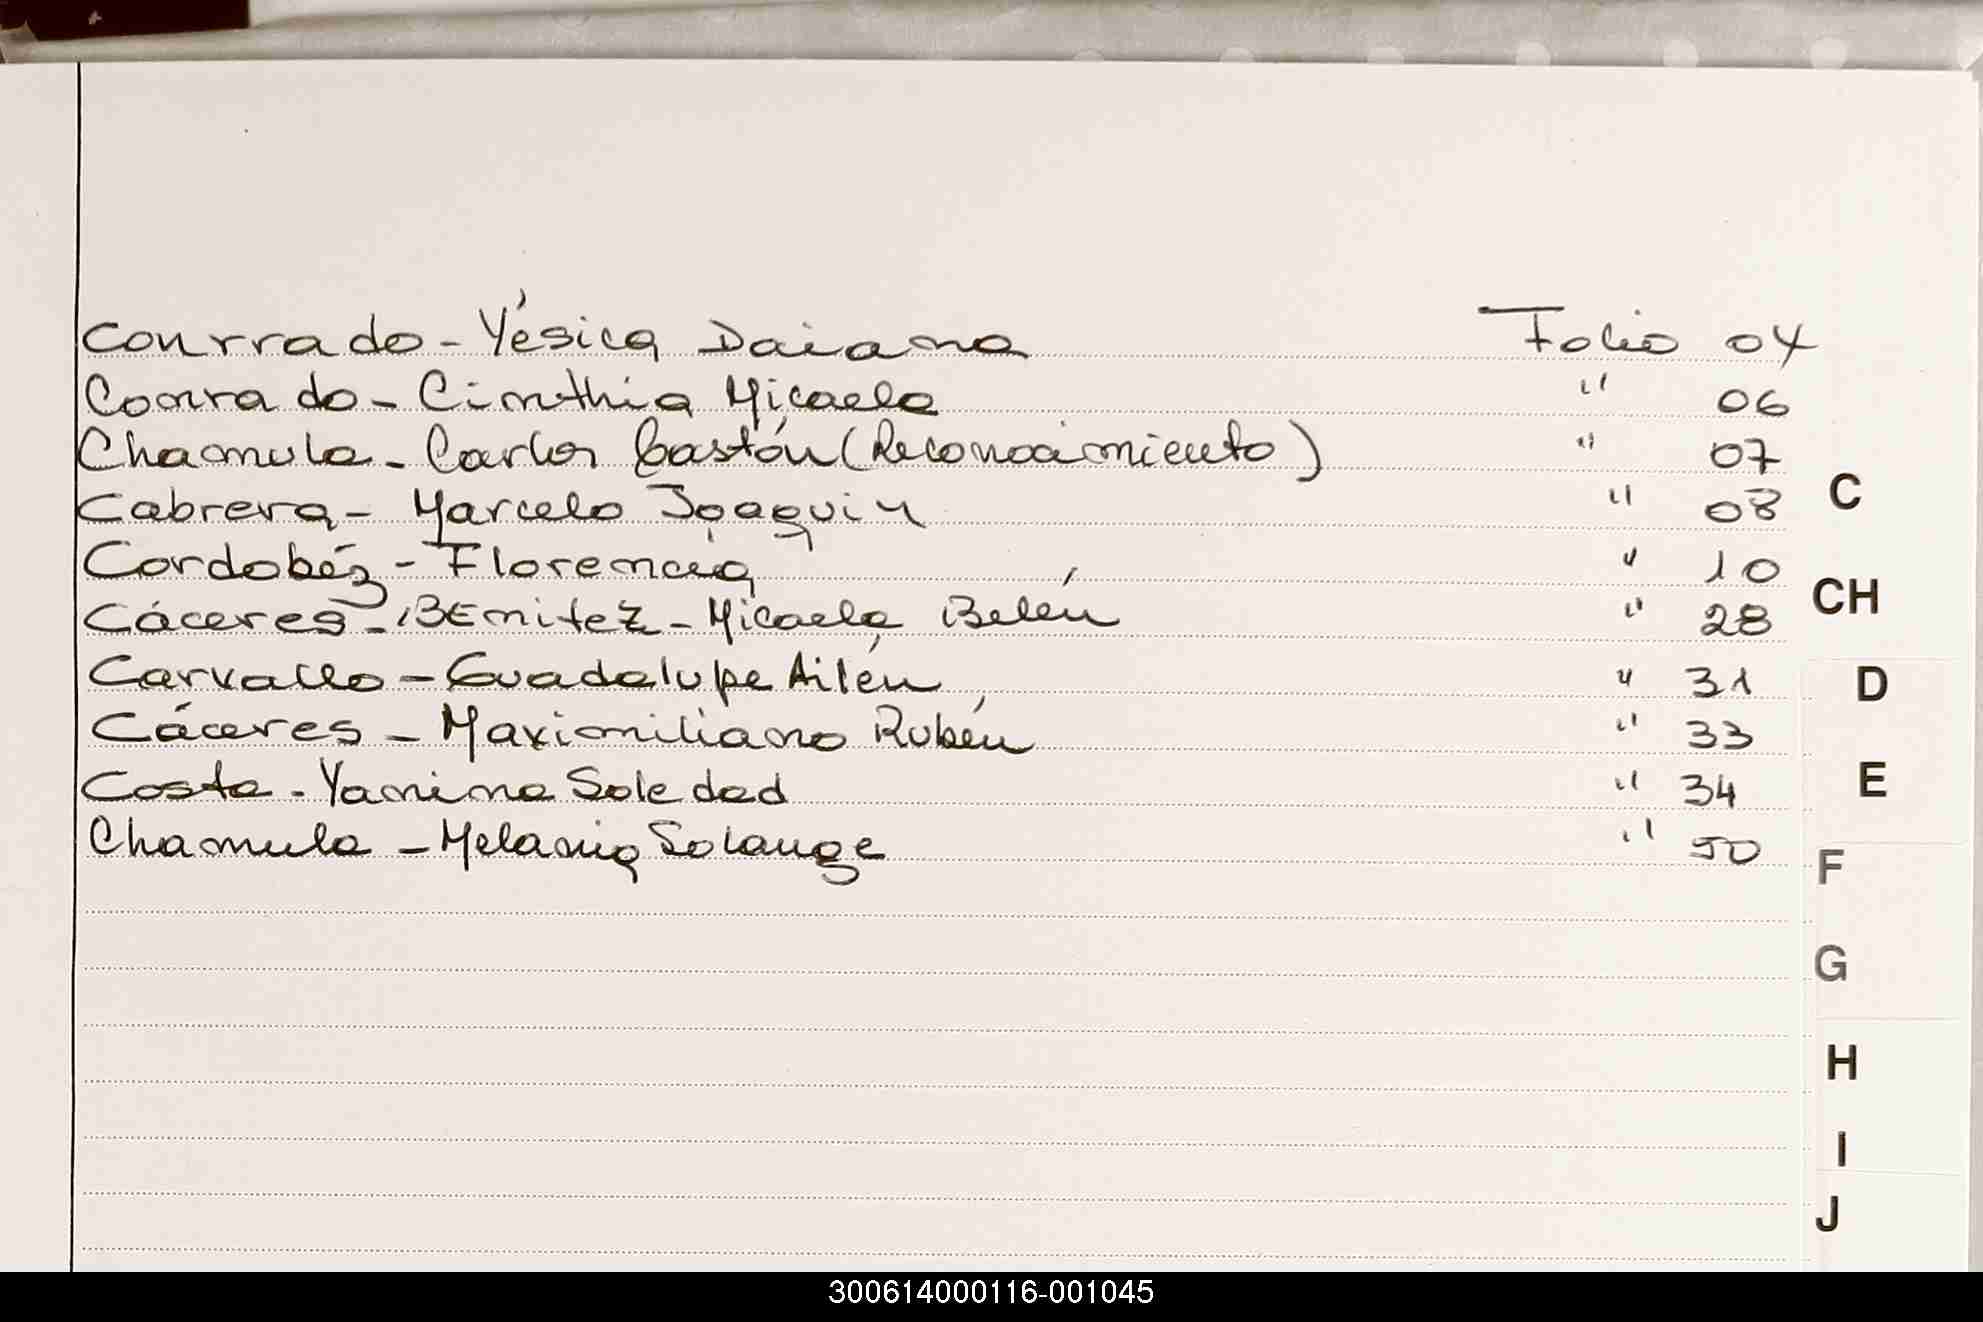 Conrrado - Yésica Daiana Folio 04
Conrado - Cinthia Micaela " 06
Chamula - Carlos Gastón (Reconocimiento) " 07
Cabrera - Marcelo Joaquin " 08
C
Cordobéz - Florencia " 10
CH
Cáceres - BEnitez - Micaela Belén " 28
Carvallo - Guadalupe Ailén " 31
D
Cáceres - Maximiliano Rubén " 33
Costa - Yanina Soledad " 34
E
Chamula - Melania Solange " 50
F
G
H
I
J
300614000116-001045